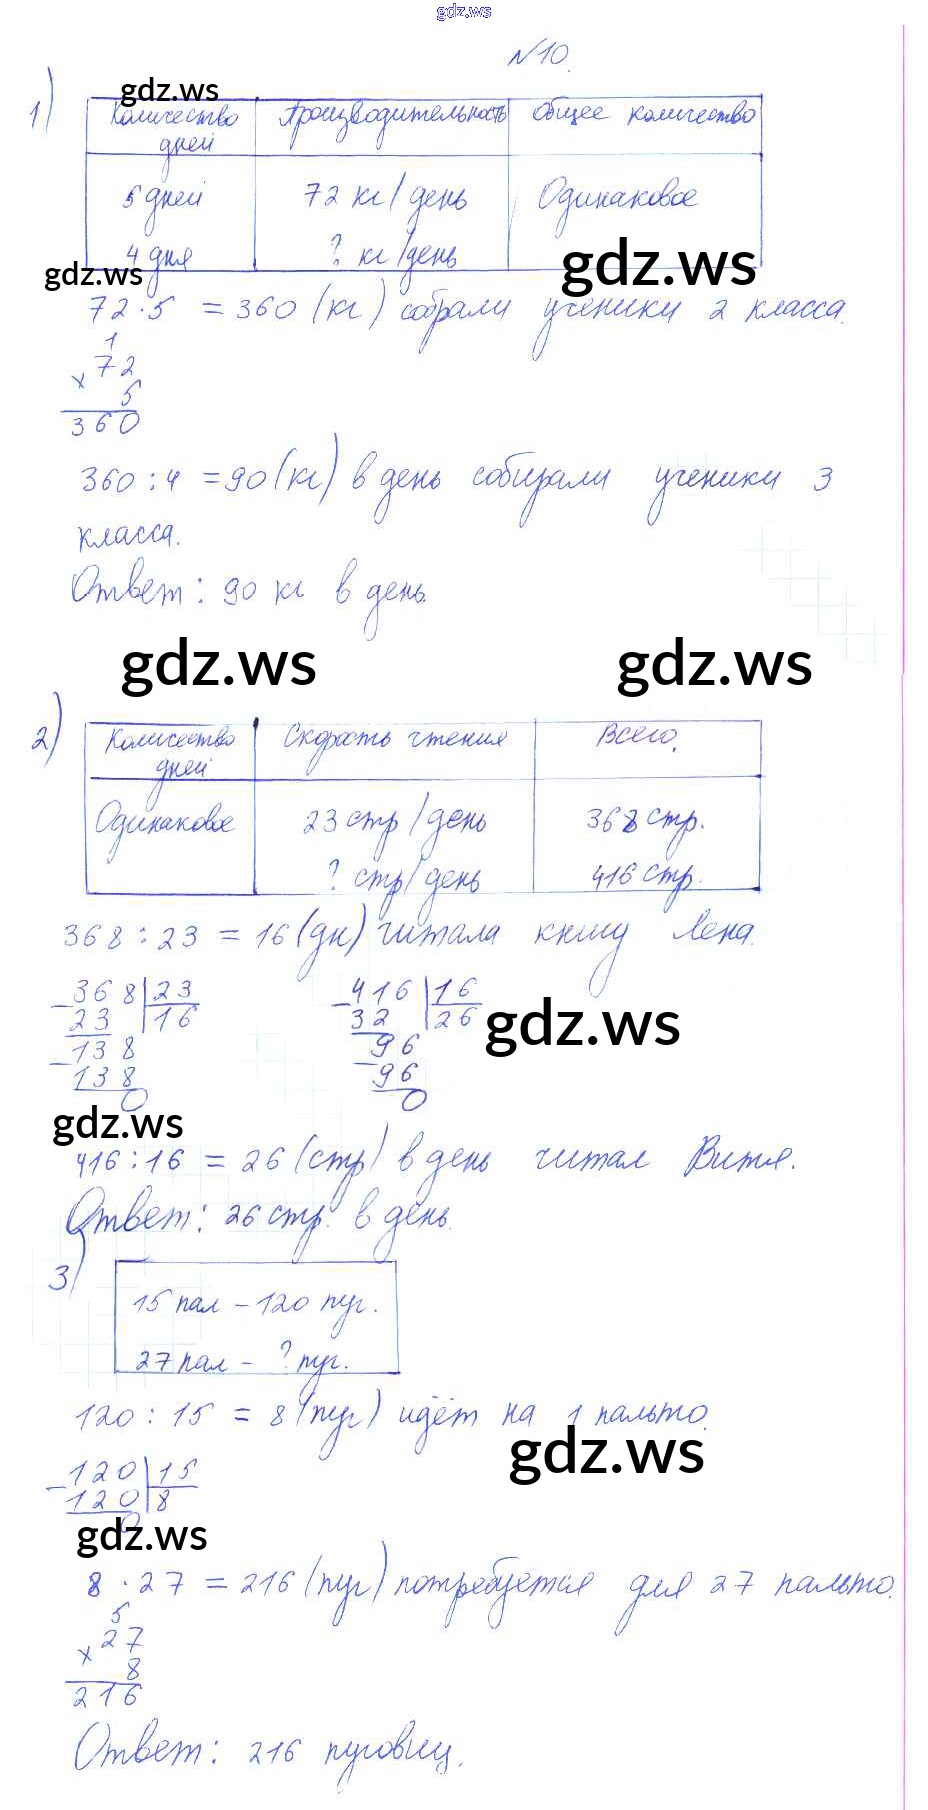 gdz.ws
№10.
1)
gdz.ws
Количество дней | Производительность | Общее количество
5 дней | 72 кг/день | Одинаковое
4 дня | ? кг/день
gdz.ws
gdz.ws
72·5 = 360 (кг) собрали ученики 2 класса.
1
× 72
5
360
360 : 4 = 90 (кг) в день собирали ученики 3
класса.
Ответ: 90 кг в день.
gdz.ws gdz.ws
2)
Количество дней | Скорость чтения | Всего.
Одинаковое | 23 стр/день | 368 стр.
? стр/день | 416 стр.
368 : 23 = 16 (дн) читала книгу Лена.
- 368 | 23
23 | 16
- 138
138
0
- 416 | 16
32 | 26
- 96
96
0
gdz.ws
gdz.ws
416 : 16 = 26 (стр) в день читал Витя.
Ответ: 26 стр. в день.
3)
15 пал – 120 пуг.
27 пал – ? пуг.
120 : 15 = 8 (пуг) идёт на 1 пальто.
gdz.ws
- 120 | 15
120 | 8
0
gdz.ws
8 · 27 = 216 (пуг) потребуется для 27 пальто.
5
× 27
8
216
Ответ: 216 пуговиц.